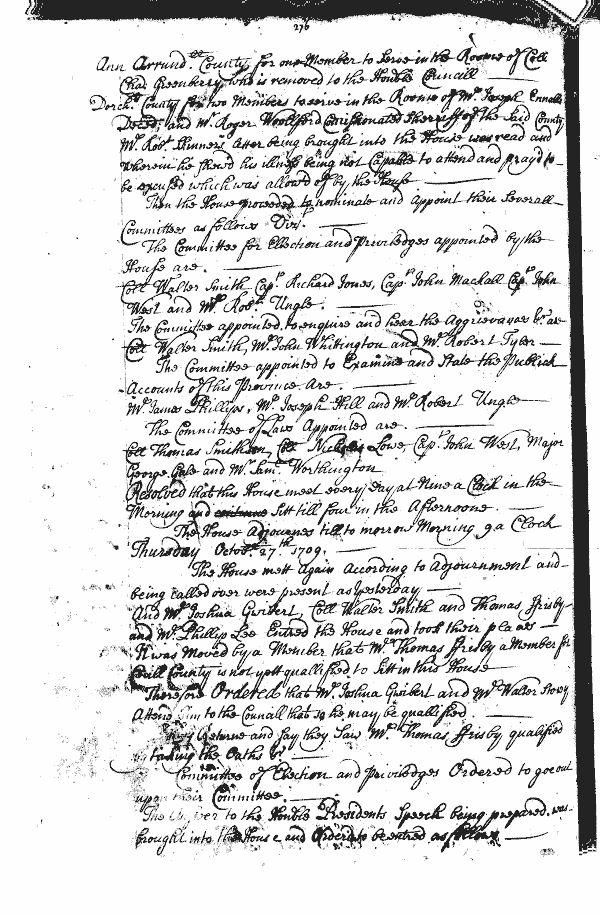 276
Ann Arrund.ll County for one Member to Serve in the Roome of Coll
Cha: Greenberry who is removed to the Honble Councill
Dorch.r County for two Members to serve in the Roome of Mr Joseph Ennalls
Deced, and Mr Roger Woolford Commissionated Sherriff of the Said County
Mr Robt Skinners Letter being brought into the House was read and
wherein he shewd his illness being not Capable to attend and prayd to
be excused which was allowed of by the House
Then the House proceeded to nominate and Appoint their Severall
Committees as follows Vizt.
The Committee for Election and Priviledges appointed by the
House are.
Coll Walter Smith Capt. Richard Jones, Capt John Mackall Capt John
West and Mr. Robt. Ungle.
The Committee appointed to enquire and hear the Aggrievances &c. are
Coll Walter Smith, Mr. John Whitington and Mr. Robert Tyler
The Committee appointed to Examine and State the Publick
Accounts of this Province Are.
Mr. James Phillips, Mr. Joseph Hill and Mr. Robert Ungle
The Committee of Laws Appointed are.
Coll Thomas Smithson, Coll Nicholas Lowe, Capt. John West, Major
George and Mr. Saml. Worthington
Resolved that this House meet every Day at Nine a Clock in the
Morning and continue Sitt till four in the Afternoone.
The House Adjournes till to morrow Morning 9 a Clock
Thursday Octobr. 27th 1709.
The House mett Again According to Adjournment and
being called over were present as Yesterday
And Mr. Joshua Guibert, Coll Walter Smith and Thomas Frisby
and Mr. Phillip Lee Entred the House and took their places
It was moved by a Member that Mr. Thomas Frisby a Member for
Cecill County is not yett quallified to Sitt in this House
Therefore Ordered that Mr. Joshua Guibert and Mr Walter Story
Attend him to the Councill that so he may be quallified
They Returne and Say they Saw Mr. Thomas Frisby qualified
by taking the Oaths &c
Committee of Election and Priviledges Ordered to goe out
upon their Committee.
The Answer to the Honble Presidents Speech being prepared. was
brought into the House and Ordered to be entred as follows